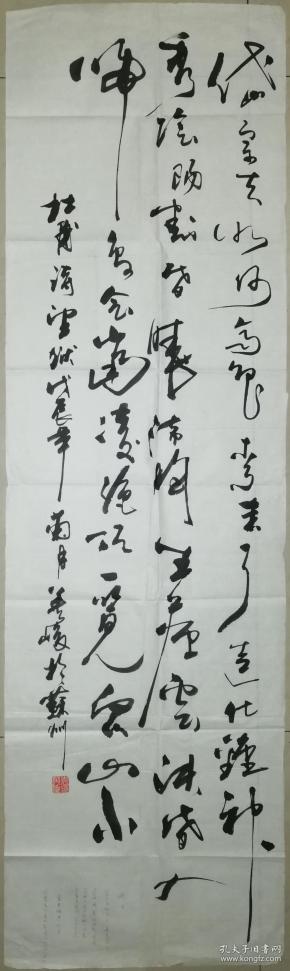 岱宗夫如何齐鲁青未了造化钟神
秀阴阳割昏晓荡胸生层云决眥入
归鸟会当凌绝顶一览众山小
杜甫诗望岳戊辰年菊月 於苏州
孔夫子旧书网
www.kongfz.com